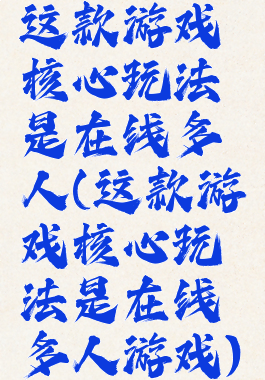 这款游戏
核心玩法
是在线多
人(这款游
戏核心玩
法是在线
多人游戏)